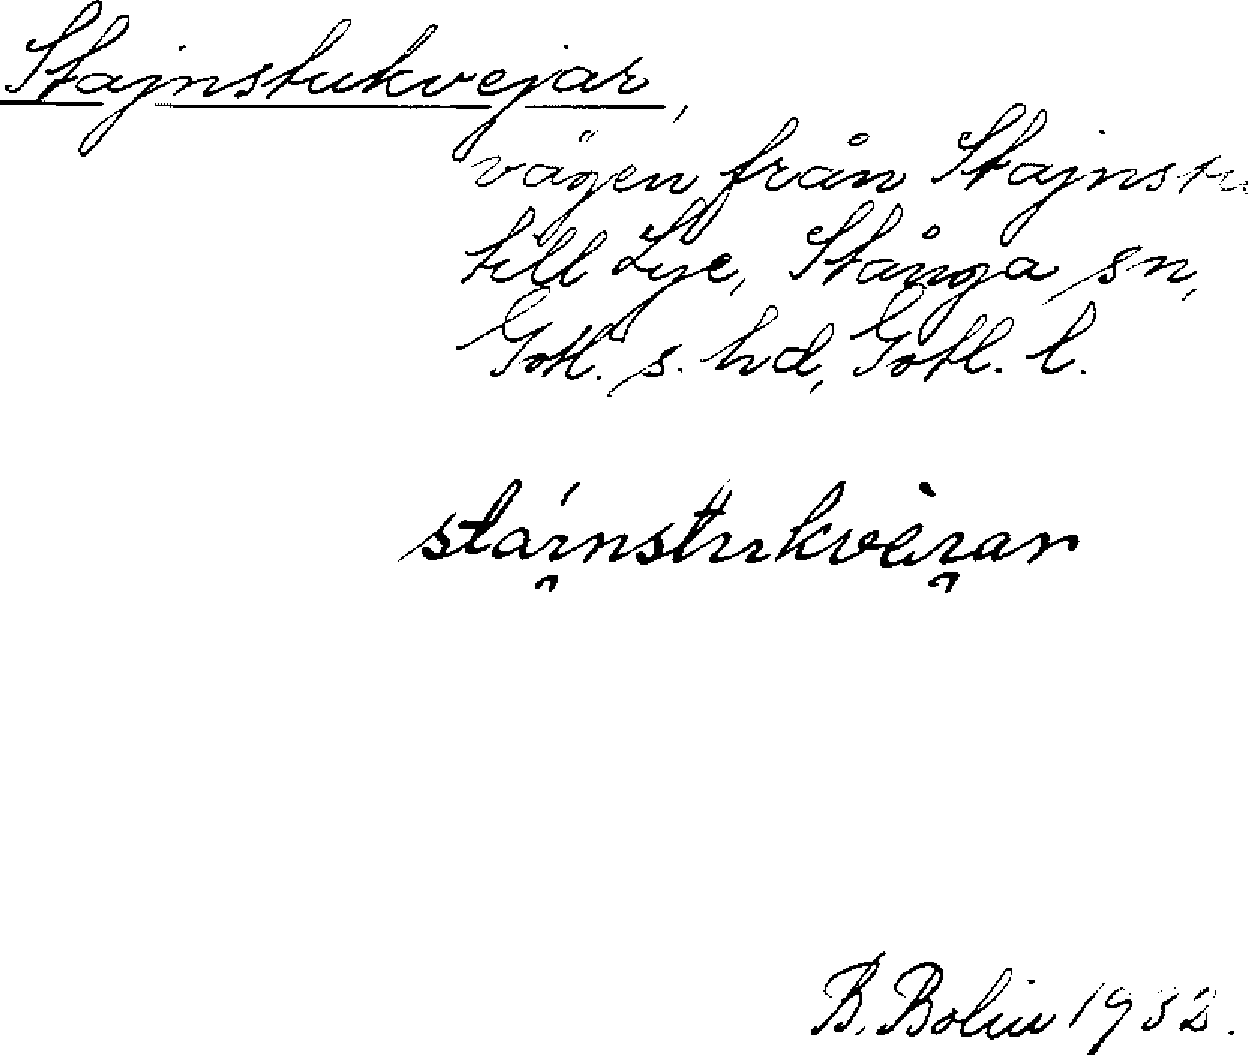 Stajnstukvejar,
vägen från Stajnstu
till Lye, Stånga sn,
Gotl. s. hd, Gotl. l.
B. Bolin 1932.